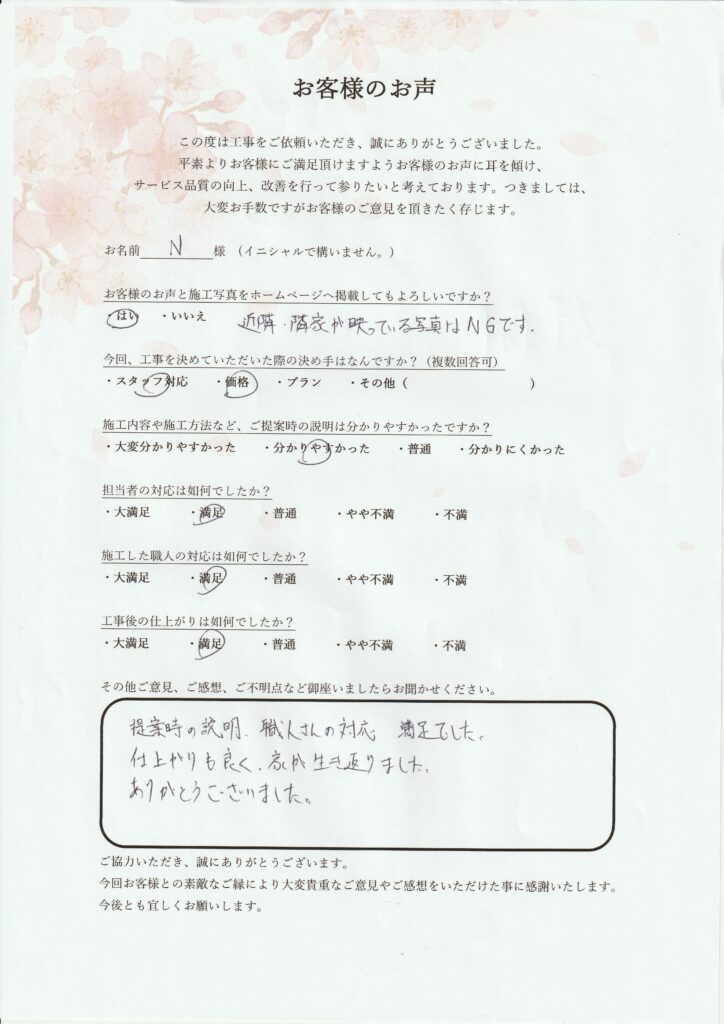 お客様のお声
この度は工事をご依頼いただき、誠にありがとうございました。
平素よりお客様にご満足頂けますようお客様のお声に耳を傾け、
サービス品質の向上、改善を行って参りたいと考えております。つきましては、
大変お手数ですがお客様のご意見を頂きたく存じます。
お名前 N 様 （イニシャルで構いません。）
お客様のお声と施工写真をホームページへ掲載してもよろしいですか？
・はい ・いいえ 近隣・隣家が映っている写真はNGです.
今回、工事を決めていただいた際の決め手はなんですか？（複数回答可）
・スタッフ対応 ・価格 ・プラン ・その他（ ）
施工内容や施工方法など、ご提案時の説明は分かりやすかったですか？
・大変分かりやすかった ・分かりやすかった ・普通 ・分かりにくかった
担当者の対応は如何でしたか？
・大満足 ・満足 ・普通 ・やや不満 ・不満
施工した職人の対応は如何でしたか？
・大満足 ・満足 ・普通 ・やや不満 ・不満
工事後の仕上がりは如何でしたか？
・大満足 ・満足 ・普通 ・やや不満 ・不満
その他ご意見、ご感想、ご不明点など御座いましたらお聞かせください。
提案時の説明、職人さんの対応 満足でした。
仕上がりも良く、家が生き返りました。
ありがとうございました。
ご協力いただき、誠にありがとうございます。
今回お客様との素敵なご縁により大変貴重なご意見やご感想をいただけた事に感謝いたします。
今後とも宜しくお願いします。